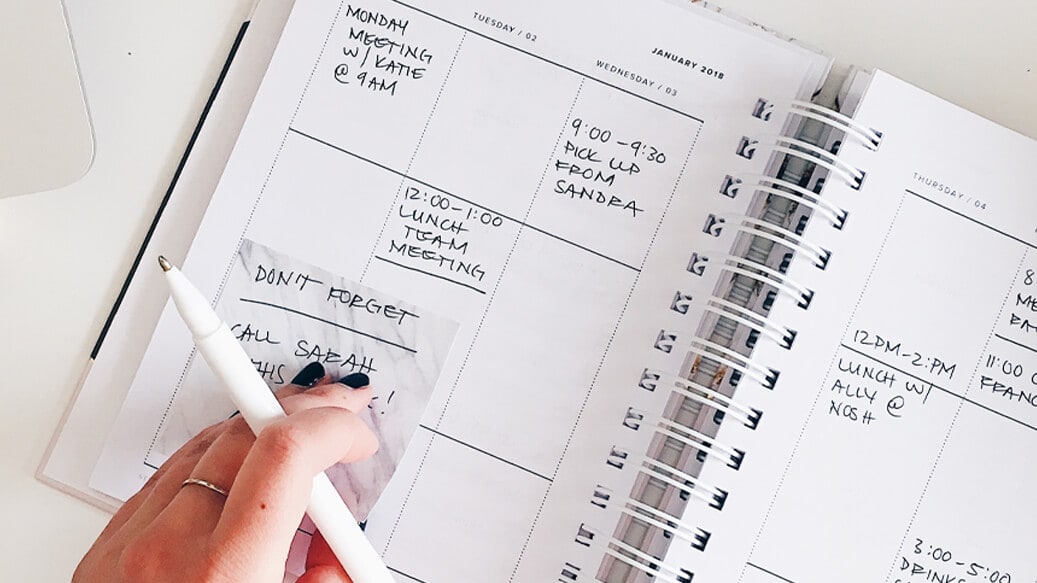 TUESDAY / 02
JANUARY 2018
WEDNESDAY / 03
MONDAY
MEETING
W/ KATIE
@ 9AM
12:00-1:00
LUNCH
TEAM
MEETING
9:00-9:30
PICK UP
FROM
SANDRA
DON'T FORGET
CALL SARAH
THURSDAY / 04
12PM-2:PM
LUNCH W/
ALLY @
NOSH
8
11:00
3:00-5:00